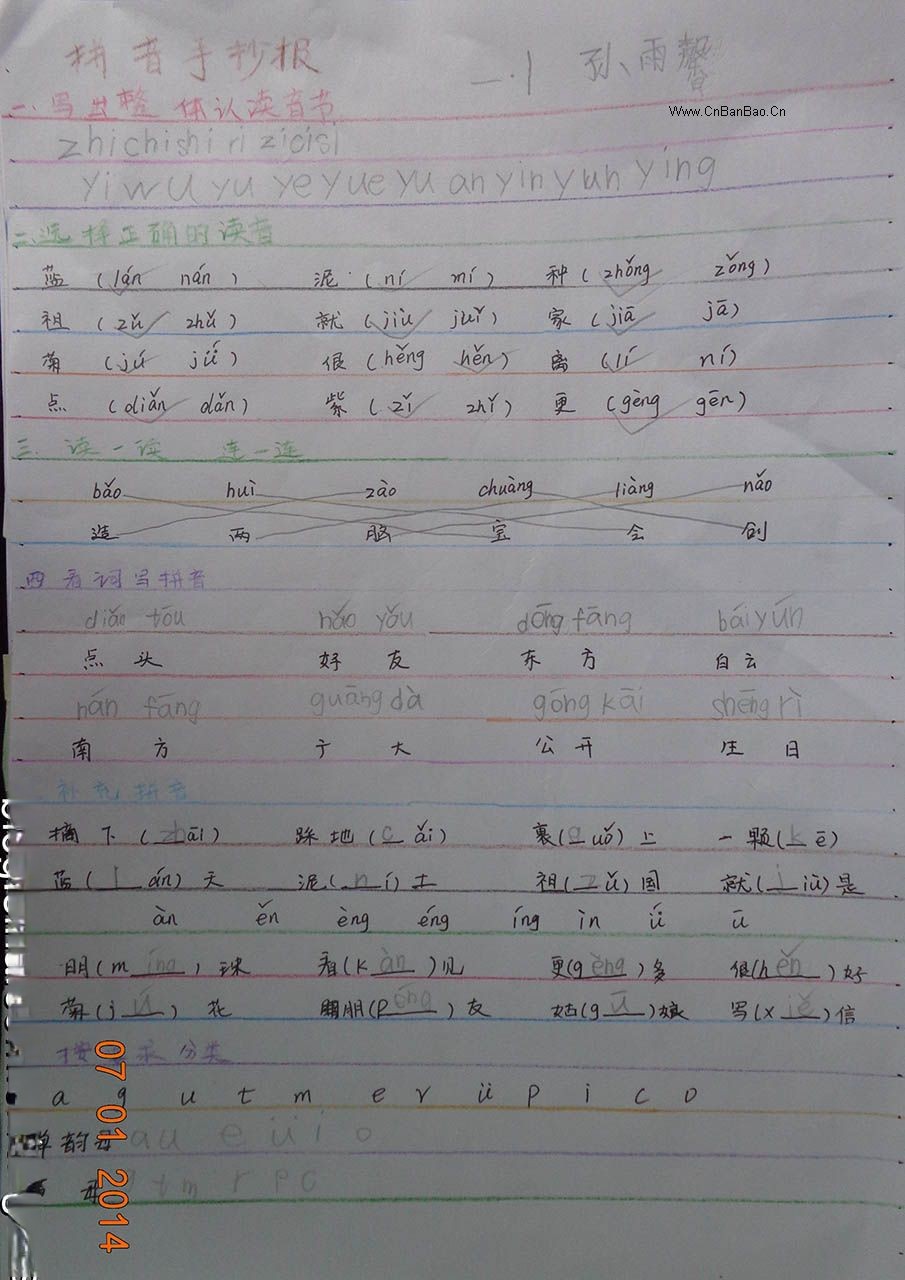 拼音手抄报 一.1 孙雨馨
www.CnBanBao.Cn
一.写出整体认读音节
zhi chi shi ri zi ci si
yi wu yu ye yue yuan yin yun ying
二.选择正确的读音
蓝 (lán nán) 泥 (ní mí) 种 (zhǒng zǒng)
祖 (zǔ zhǔ) 就 (jiù juǐ) 家 (jiā jā)
菊 (jú jǘ) 很 (hěng hěn) 离 (lí ní)
点 (diǎn dǎn) 紫 (zǐ zhǐ) 更 (gèng gēn)
三.读一读 连一连
bǎo huì zào chuàng liàng nǎo
造 两 脑 宝 会 创
四 看词写拼音
diǎn tōu hǎo yǒu dōng fāng bái yún
点 头 好 友 东 方 白 云
nán fāng guāng dà gōng kāi shēng rì
南 方 广 大 公 开 生 日
补充拼音
摘下(zhāi) 踩地(cǎi) 裹(guǒ)上 一颗(kē)
蓝(lán)天 泥(ní)土 祖(zǔ)国 就(jiù)是
àn ěn èng éng íng ìn ǘ ū
明(míng)珠 看(kàn)见 更(gèng)多 很(hěn)好
菊(jú)花 朋(péng)友 姑(gū)娘 写(xiě)信
按要求分类
a q u t m e r ü p i c o
单韵母 a u e ü i o
母 t m r p c
07 01 2014